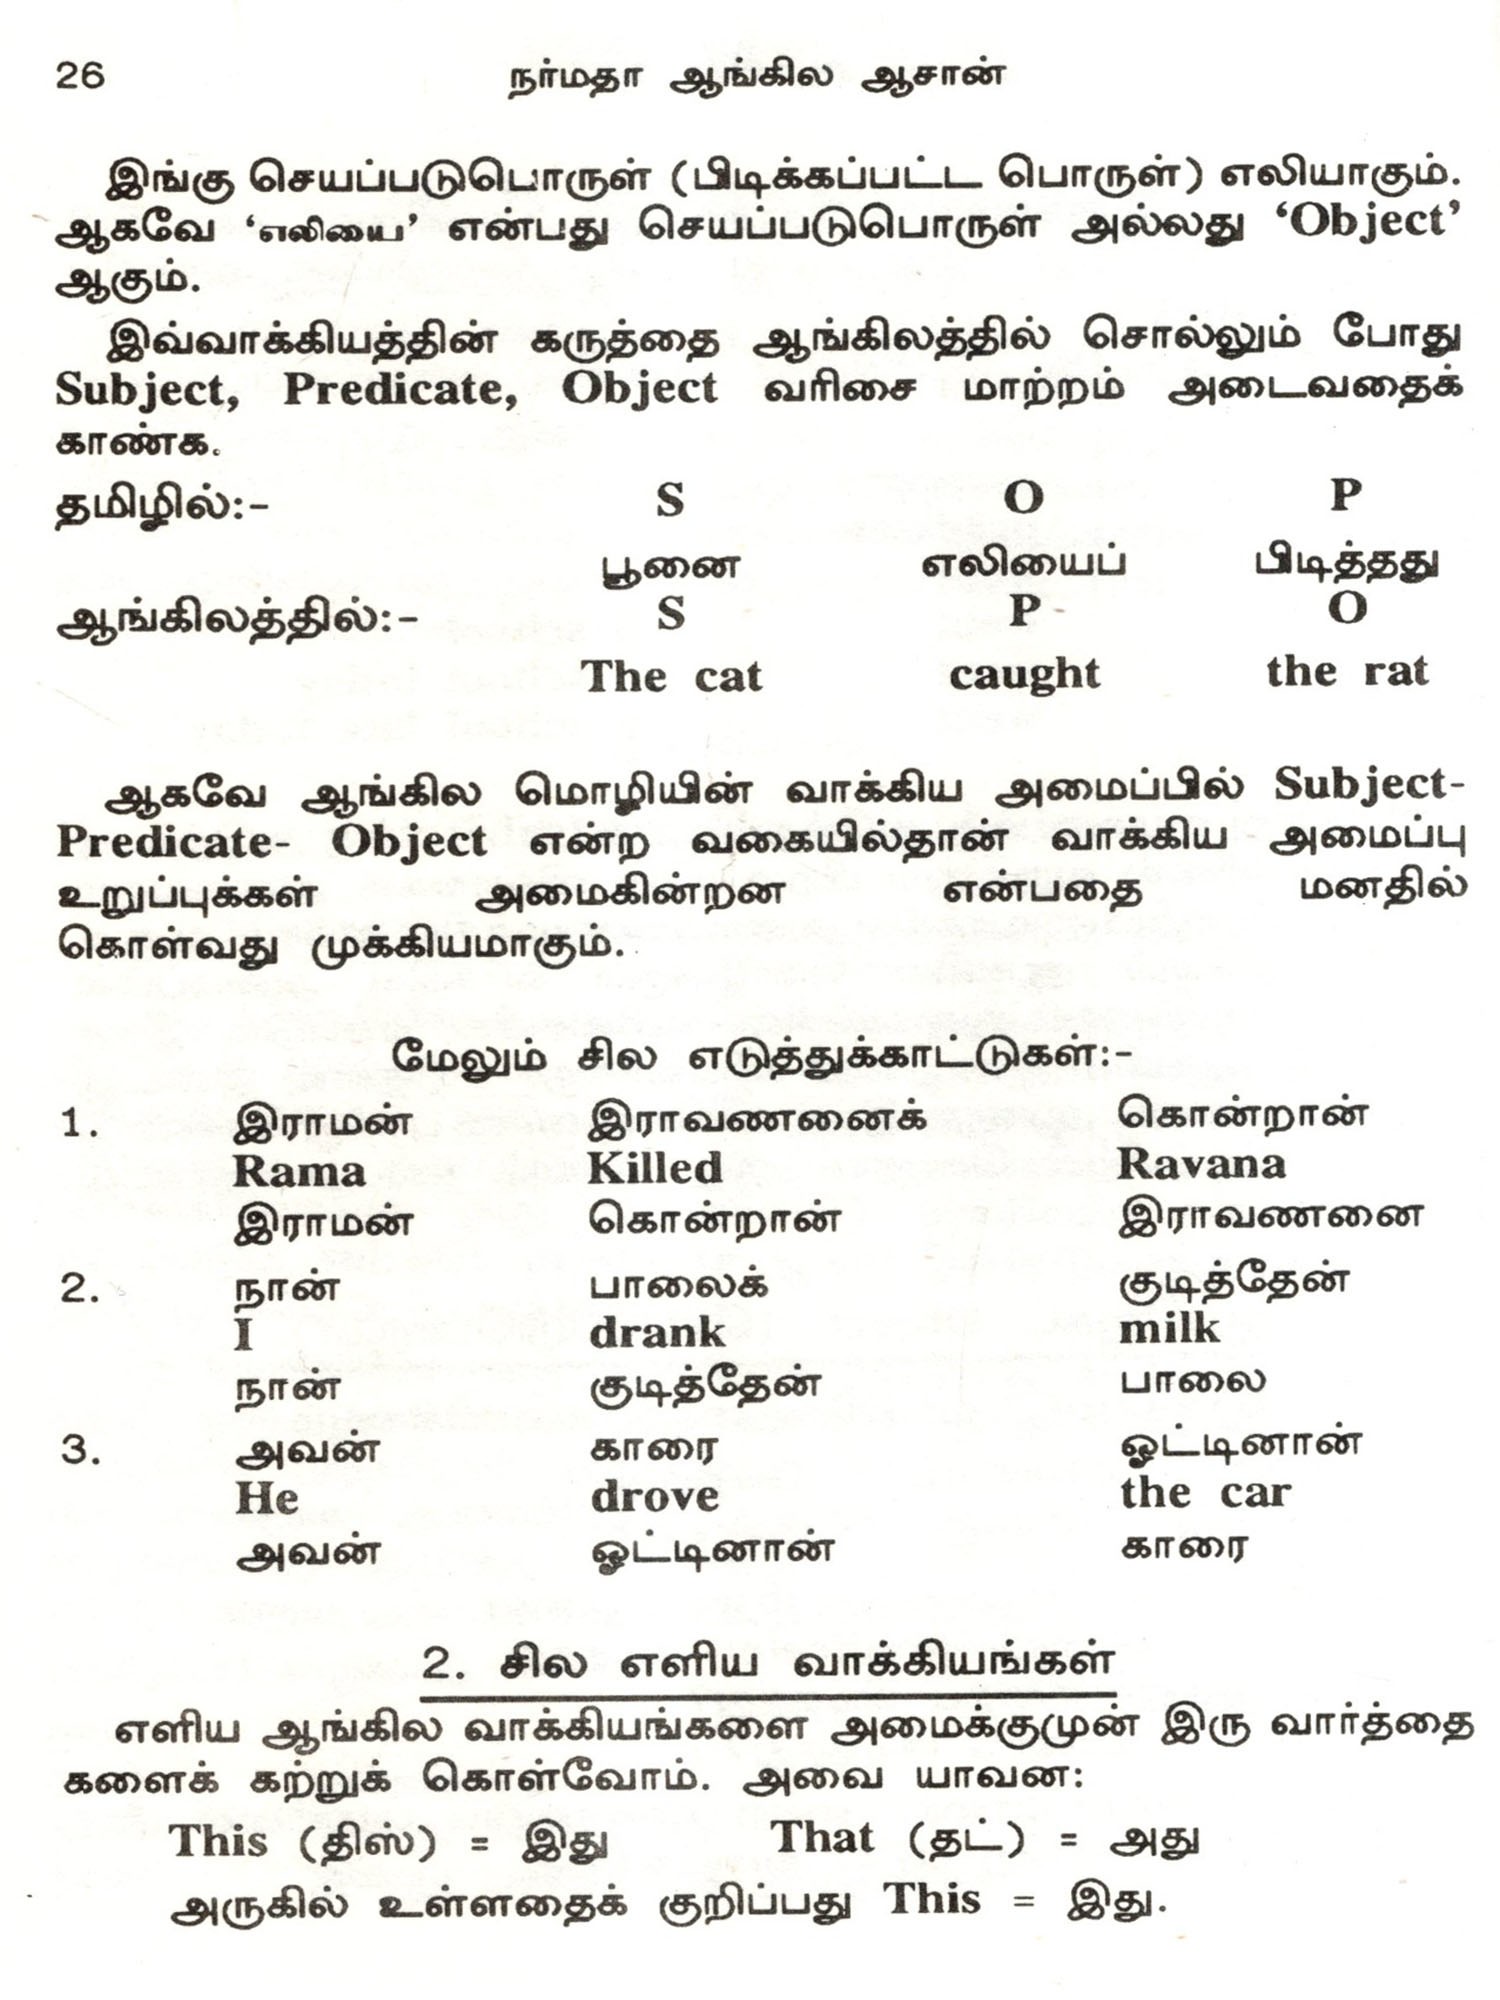 26 நர்மதா ஆங்கில ஆசான்
இங்கு செயப்படுபொருள் (பிடிக்கப்பட்ட பொருள்) எலியாகும்.
ஆகவே ‘எலியை’ என்பது செயப்படுபொருள் அல்லது ‘Object’
ஆகும்.
இவ்வாக்கியத்தின் கருத்தை ஆங்கிலத்தில் சொல்லும் போது
Subject, Predicate, Object வரிசை மாற்றம் அடைவதைக்
காண்க.
தமிழில்:- S O P
பூனை எலியைப் பிடித்தது
ஆங்கிலத்தில்:- S P O
The cat caught the rat
ஆகவே ஆங்கில மொழியின் வாக்கிய அமைப்பில் Subject-
Predicate- Object என்ற வகையில்தான் வாக்கிய அமைப்பு
உறுப்புக்கள் அமைகின்றன என்பதை மனதில்
கொள்வது முக்கியமாகும்.
மேலும் சில எடுத்துக்காட்டுகள்:-
1. இராமன் இராவணனைக் கொன்றான்
Rama Killed Ravana
இராமன் கொன்றான் இராவணனை
2. நான் பாலைக் குடித்தேன்
I drank milk
நான் குடித்தேன் பாலை
3. அவன் காரை ஓட்டினான்
He drove the car
அவன் ஓட்டினான் காரை
2. சில எளிய வாக்கியங்கள்
எளிய ஆங்கில வாக்கியங்களை அமைக்குமுன் இரு வார்த்தை
களைக் கற்றுக் கொள்வோம். அவை யாவன:
This (திஸ்) = இது That (தட்) = அது
அருகில் உள்ளதைக் குறிப்பது This = இது.